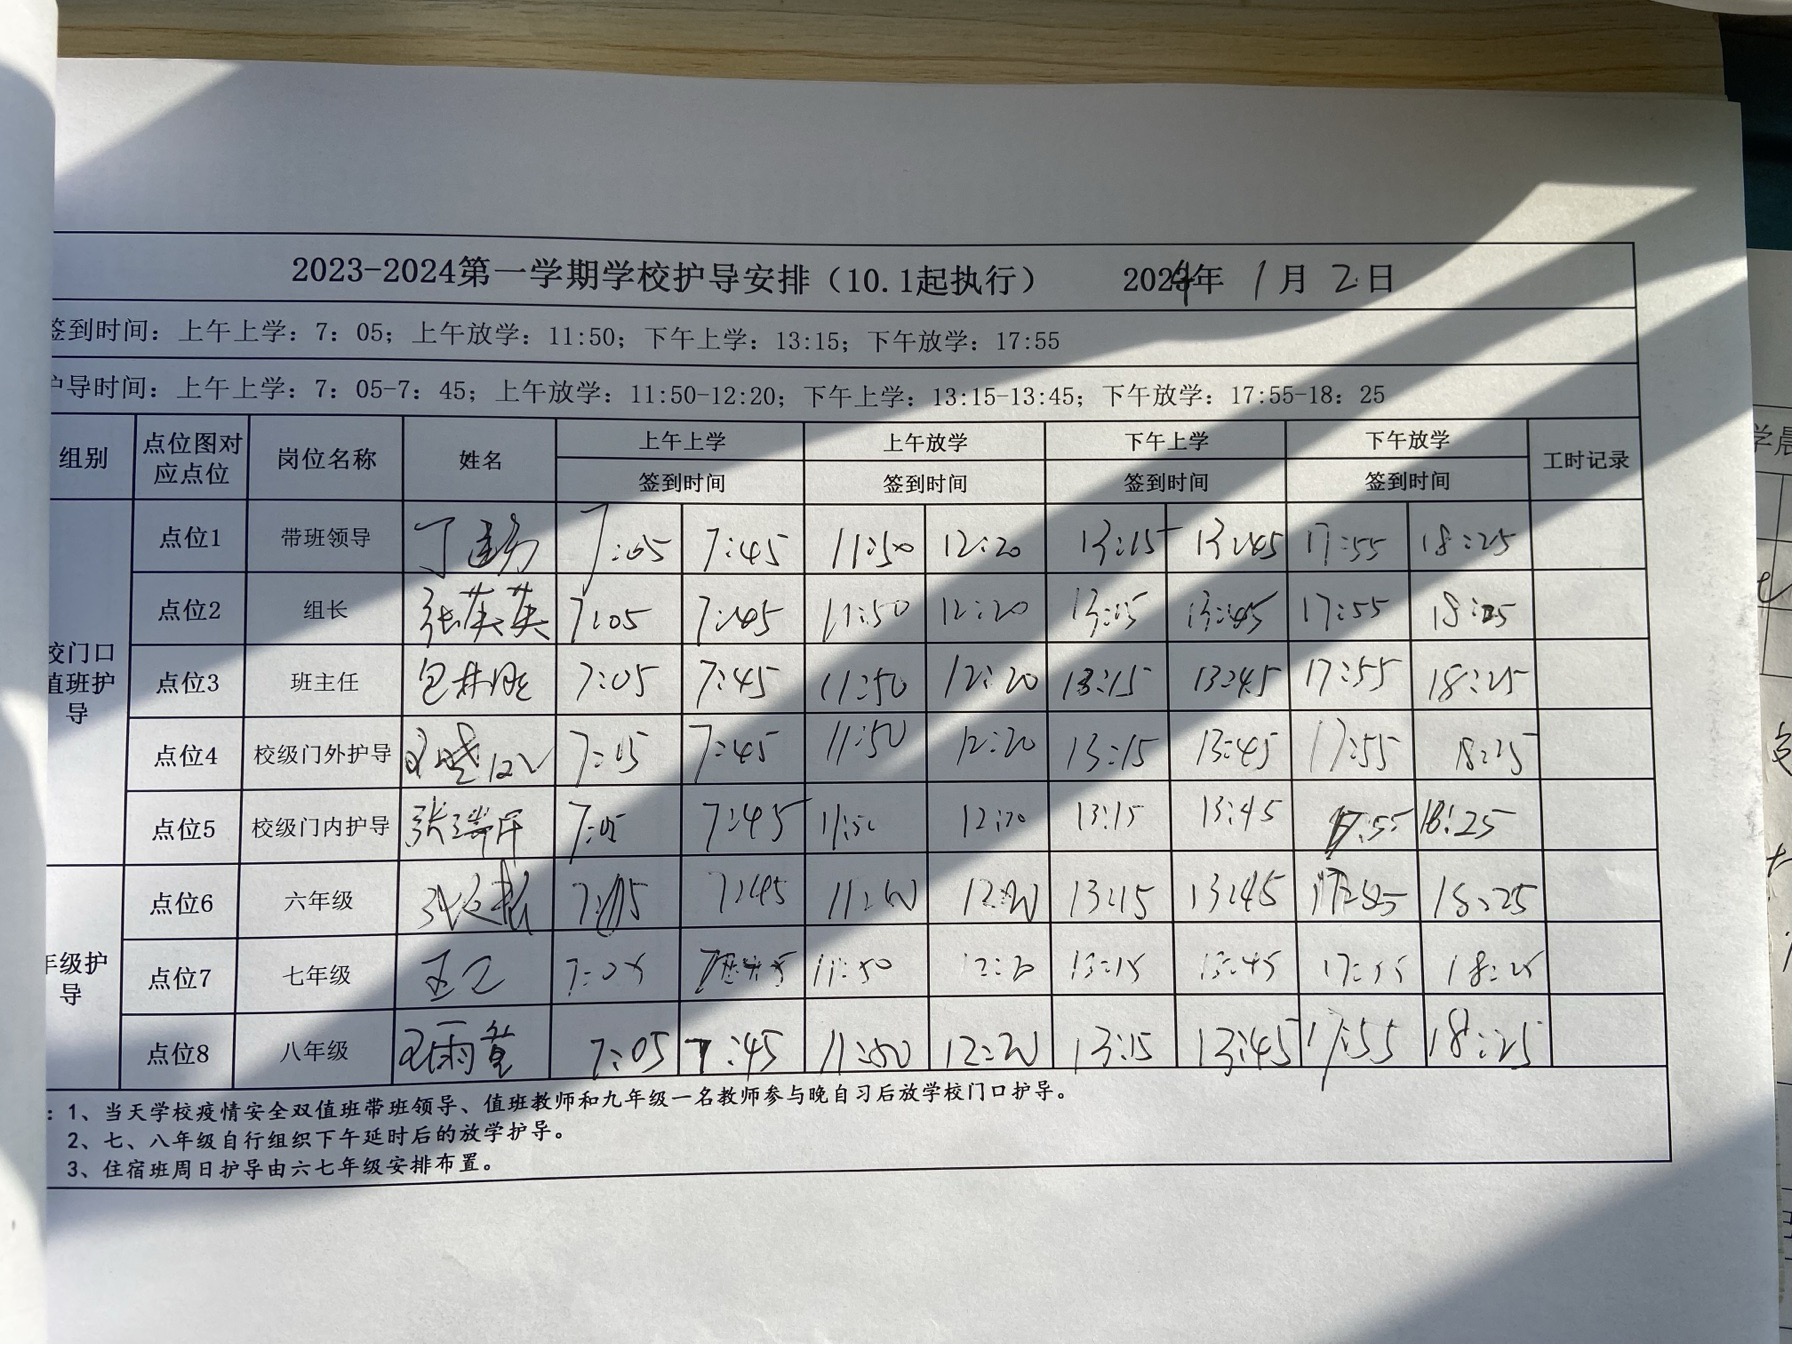 2023-2024第一学期学校护导安排（10.1起执行） 2024年 1月 2日
签到时间：上午上学：7：05；上午放学：11:50；下午上学：13:15；下午放学：17:55
护导时间：上午上学：7：05-7：45；上午放学：11:50-12:20；下午上学：13:15-13:45；下午放学：17:55-18：25
组别 点位图对应点位 岗位名称 姓名 上午上学 上午放学 下午上学 下午放学 工时记录
签到时间 签到时间 签到时间 签到时间
校门口值班护导
点位1 带班领导 7:05 7:45 11:50 12:20 13:15 13:45 17:55 18:25
点位2 组长 张英英 7:05 7:45 11:50 12:20 13:15 13:45 17:55 18:25
点位3 班主任 7:05 7:45 11:50 12:20 13:15 13:45 17:55 18:25
点位4 校级门外护导 7:05 7:45 11:50 12:20 13:15 13:45 17:55 18:25
点位5 校级门内护导 7:05 7:45 11:50 12:20 13:15 13:45 17:55 18:25
年级护导
点位6 六年级 7:05 7:45 11:50 12:20 13:15 13:45 17:55 18:25
点位7 七年级 7:05 7:45 11:50 12:20 13:15 13:45 17:55 18:25
点位8 八年级 7:05 7:45 11:50 12:20 13:15 13:45 17:55 18:25
：1、当天学校疫情安全双值班带班领导、值班教师和九年级一名教师参与晚自习后放学校门口护导。
2、七、八年级自行组织下午延时后的放学护导。
3、住宿班周日护导由六七年级安排布置。